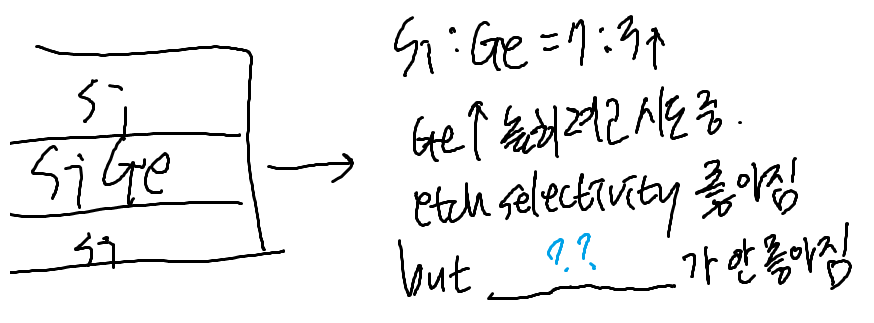 Si
SiGe
Si
Si : Ge = 7 : 3↑
Ge↑ 높히려고 시도 중.
etch selectivity 좋아짐
but ?.? 가 안 좋아짐